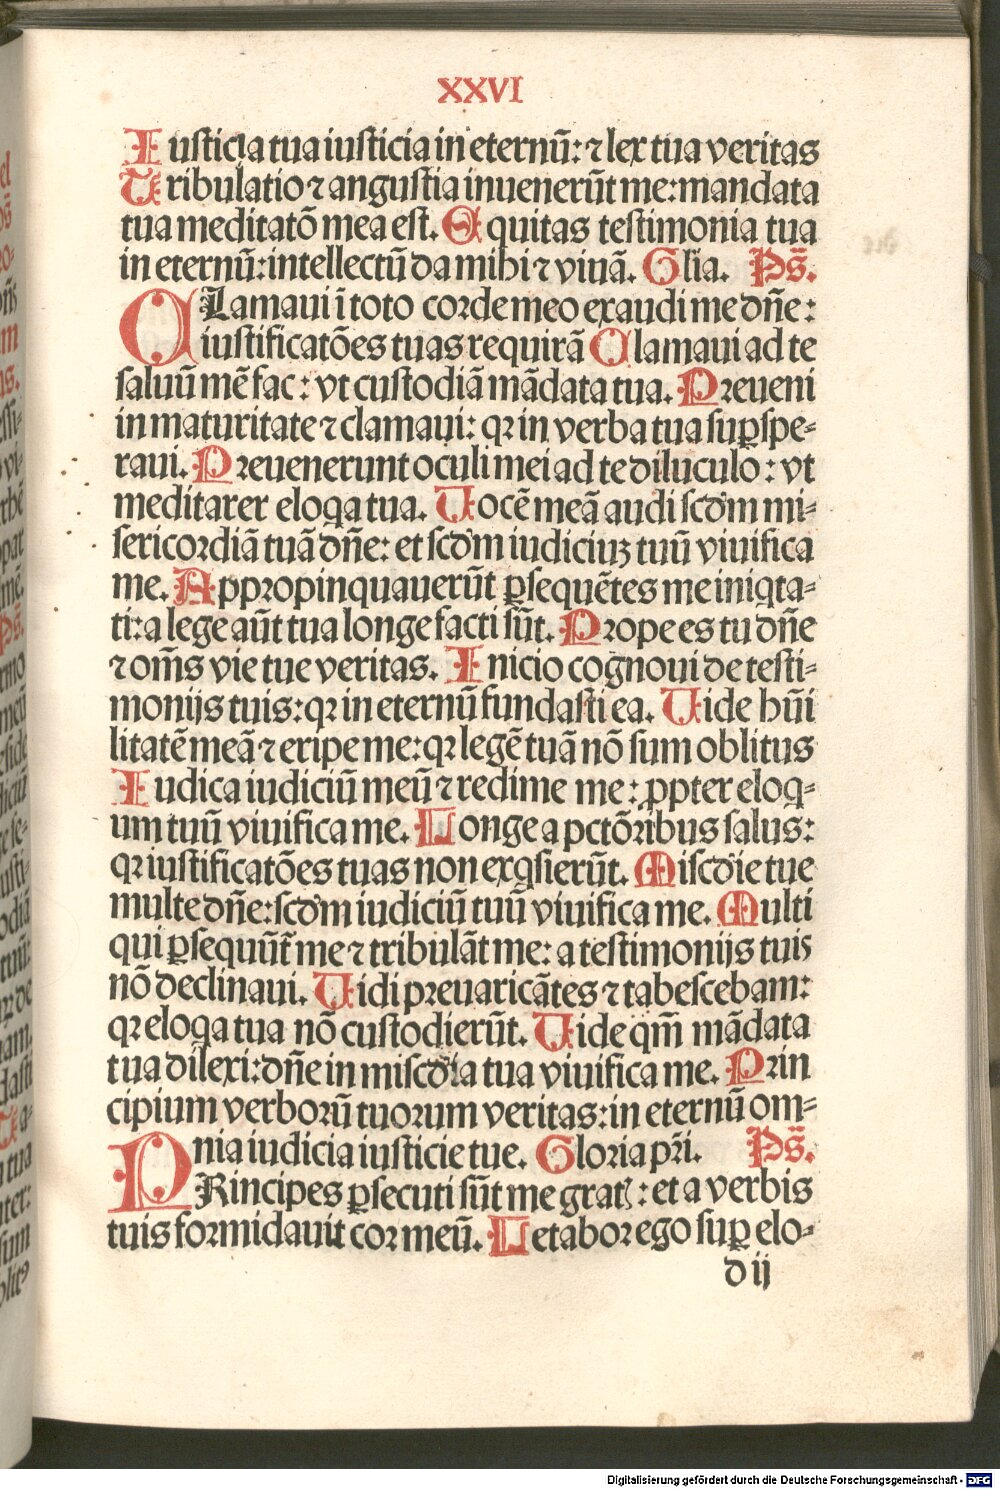 XXVI
Iusticia tua iusticia in eternū: ⁊ lex tua veritas
Tribulatio ⁊ angustia inuenerūt me: mandata
tua meditatō mea est. Equitas testimonia tua
in eternū: intellectū da mihi ⁊ viuā. Glia. Ps̄.
CLamaui ī toto corde meo exaudi me dn̄e:
iustificatōes tuas requirā Clamaui ad te
saluū mē fac: vt custodiā mādata tua. Preueni
in maturitate ⁊ clamaui: qꝛ in verba tua suꝑ spe-
raui. Preuenerunt oculi mei ad te diluculo: vt
meditarer eloqa tua. Uocē meā audi scd̓m mi-
sericordiā tuā dn̄e: et scd̓m iudiciuꝫ tuū viuifica
me. Appropinquauerūt ꝑsequētes me iniqta-
ti: a lege aūt tua longe facti sūt. Prope es tu dn̄e
⁊ om̄s vie tue veritas. Inicio cognoui de testi-
monijs tuis: qꝛ in eternū fundasti ea. Uide hūi
litatē meā ⁊ eripe me: qꝛ legē tuā nō sum oblitus
Iudica iudiciū meū ⁊ redime me: ꝓpter eloq-
um tuū viuifica me. Longe a pctōribus salus:
qꝛ iustificatōes tuas non exqsierūt. Miscd̓ie tue
multe dn̄e: scd̓m iudiciū tuū viuifica me. Multi
qui ꝑsequūt̄ me ⁊ tribulāt me: a testimonijs tuis
nō declinaui. Uidi preuaricātes ⁊ tabescebam:
qꝛ eloqa tua nō custodierūt. Uide qm̄ mādata
tua dilexi: dn̄e in miscd̓ia tua viuifica me. Prin
cipium verborū tuorum veritas: in eternū om-
nia iudicia iusticie tue. Gloria pr̄i. Ps̄.
PRincipes ꝑsecuti sūt me gratꝭ: et a verbis
tuis formidauit cor meū. Letabor ego suꝑ elo-
d ij
Digitalisierung gefördert durch die Deutsche Forschungsgemeinschaft - DFG